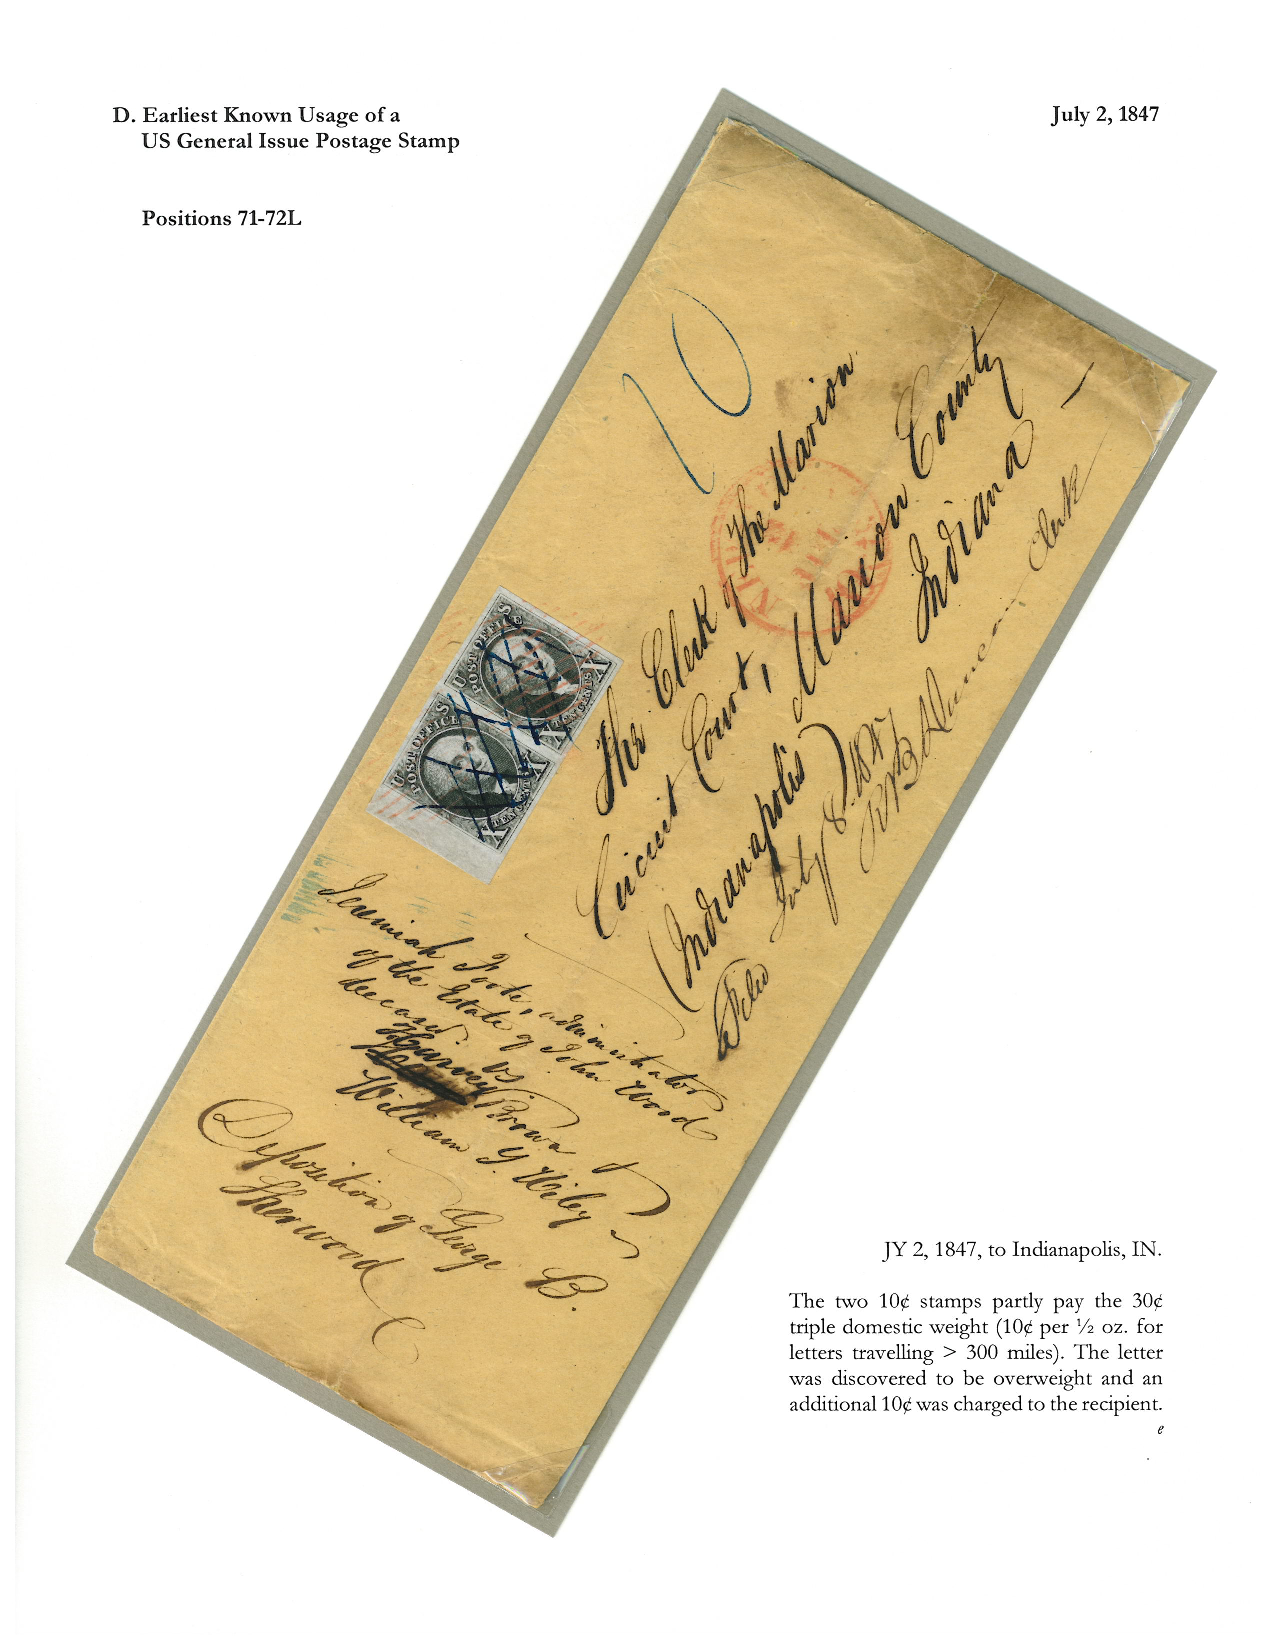 D. Earliest Known Usage of a
US General Issue Postage Stamp
July 2, 1847
Positions 71-72L
10
U S
POST OFFICE
X TEN CENTS X
U S
POST OFFICE
X TEN CENTS X
The Clerk of The Marion
Circuit Court, Marion County
(Indianapolis) Indiana —
Filed July 8. 1847
R B Duncan Clerk
Jeremiah Foote, administrator
of the Estate of John Wood
deceased. vs
Harvey Brown &
William Y Wiley
Deposition of George B.
Sherwood
JY 2, 1847, to Indianapolis, IN.
The two 10¢ stamps partly pay the 30¢
triple domestic weight (10¢ per ½ oz. for
letters travelling > 300 miles). The letter
was discovered to be overweight and an
additional 10¢ was charged to the recipient.
e